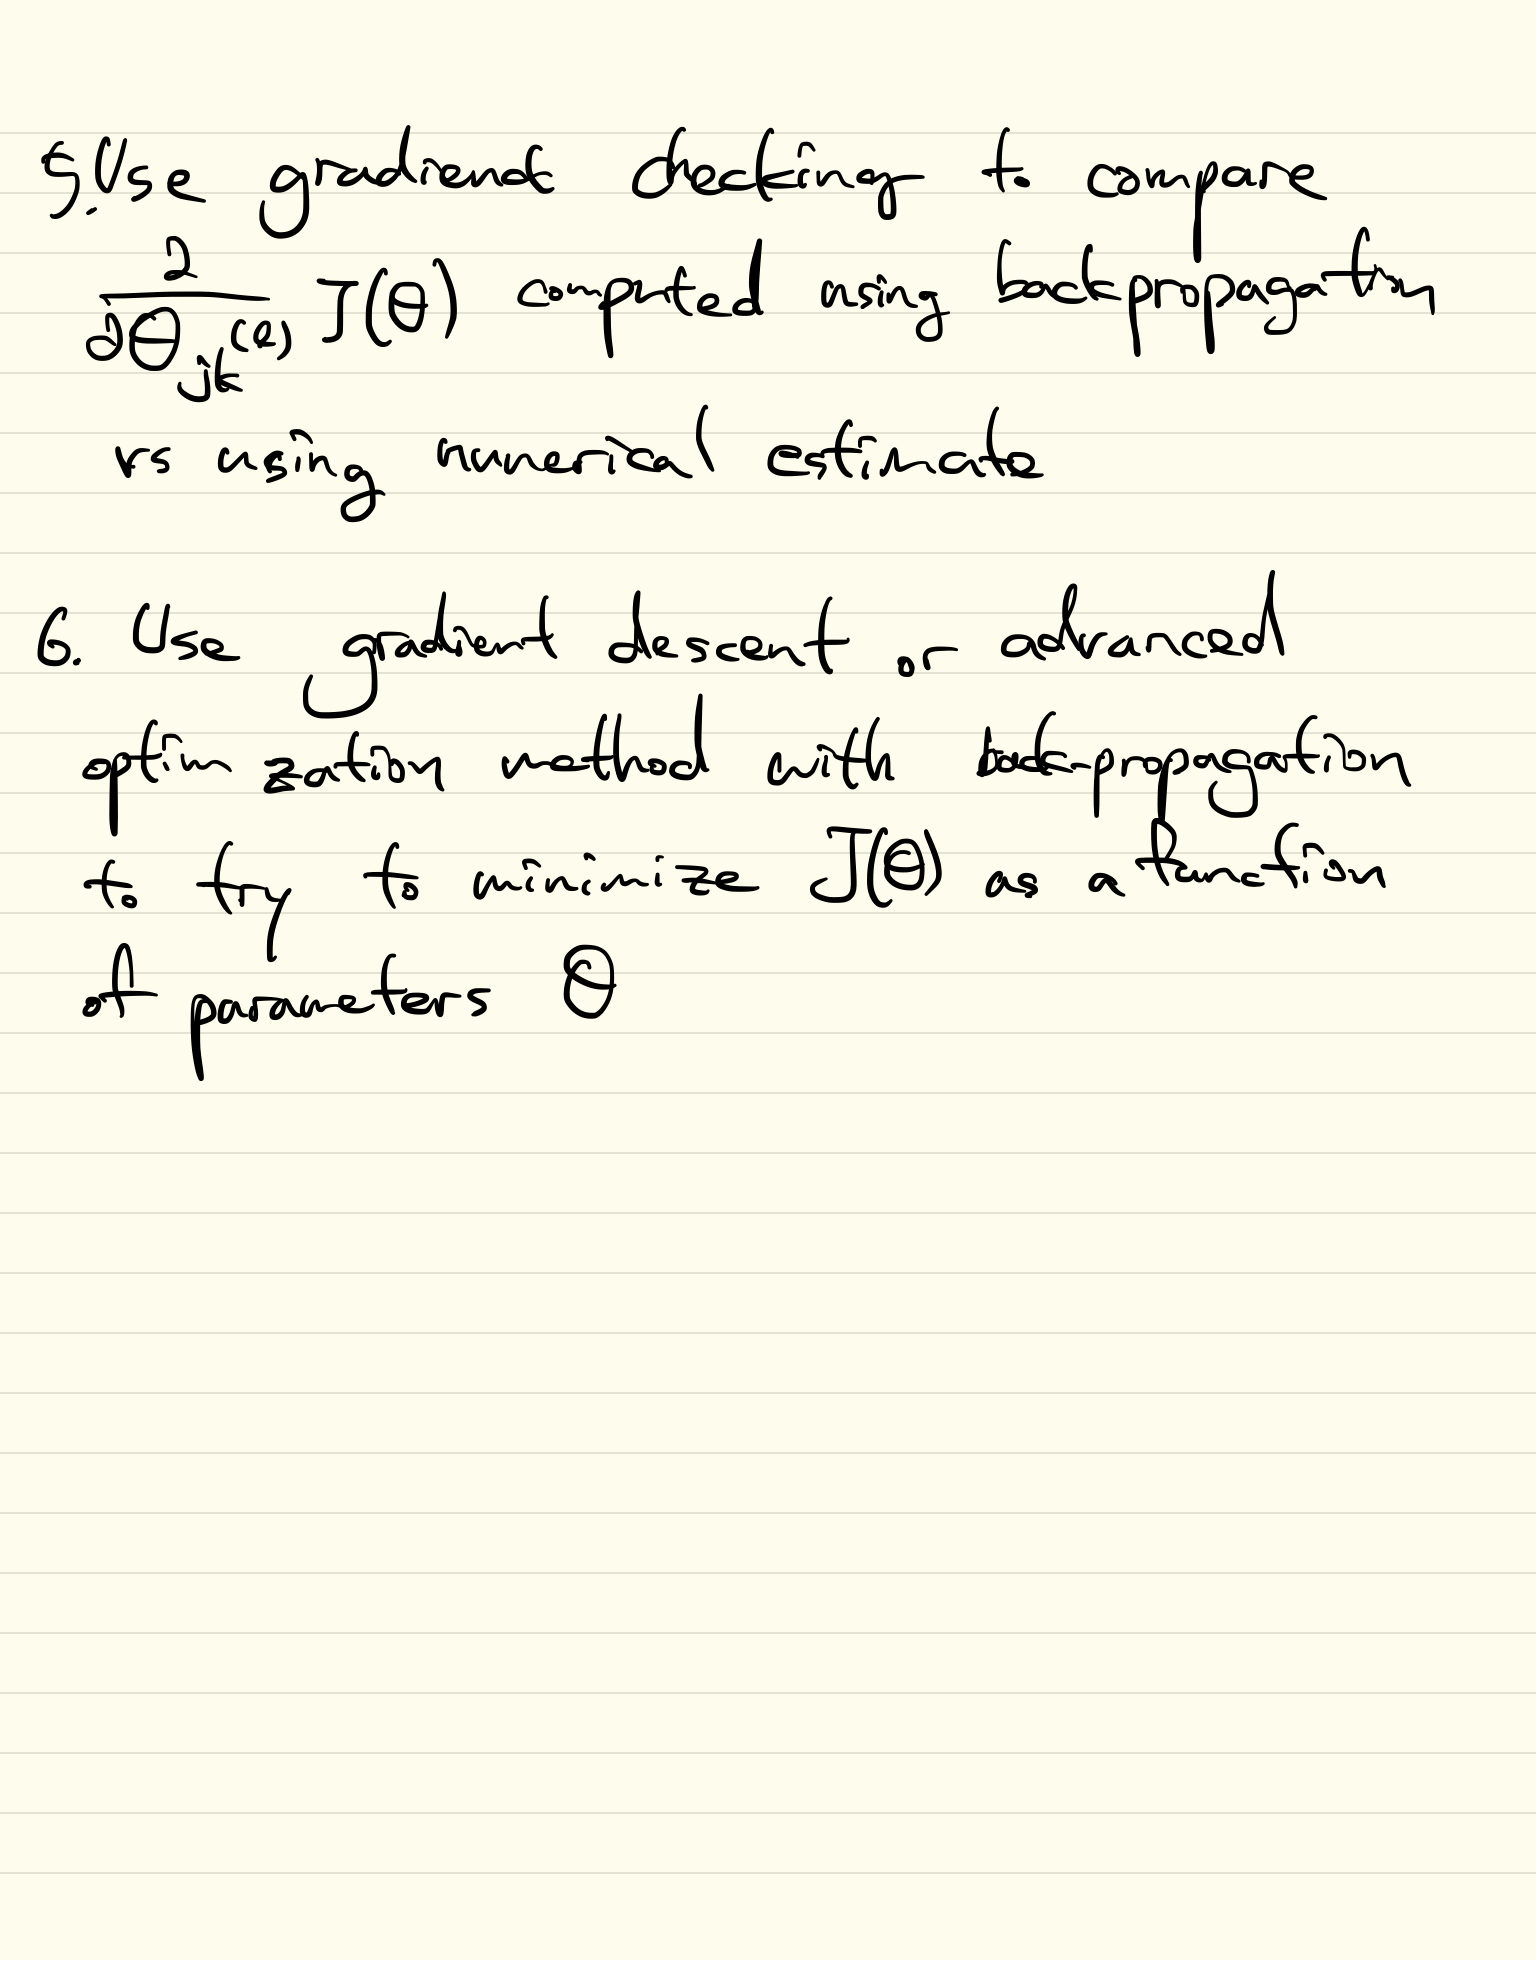 5. Use gradient checking to compare
∂/∂Θjk(l) J(Θ) computed using backpropagation
vs using numerical estimate
6. Use gradient descent or advanced
optimzation method with backpropagation
to try to minimize J(Θ) as a function
of parameters Θ